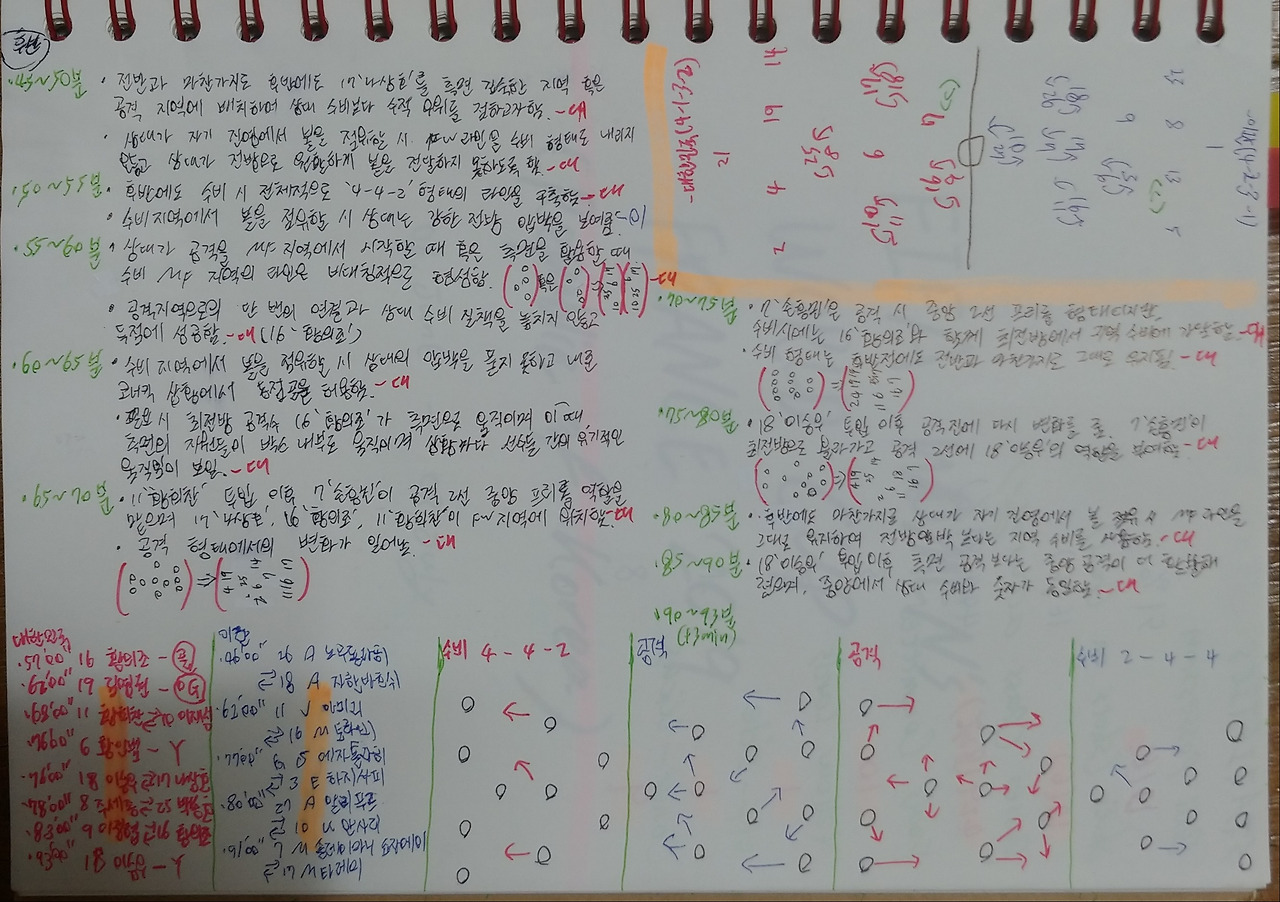 후반
·45~50분
· 전반과 마찬가지로 후반에도 17 '나상호'를 측면 깊숙한 지역 혹은
공격 지역에 배치하여 상대 수비보다 수적 우위를 점하고자함. -대
· 상대가 자기 진영에서 볼을 점유할 시 FW라인을 수비 형태로 내리지
않고 상대가 전방으로 원활하게 볼을 전달하지 못하도록 함. -대
·50~55분
· 후반에도 수비 시 전체적으로 '4-4-2' 형태의 라인을 구축함. -대
· 수비지역에서 볼을 점유할 시 상대는 강한 전방 압박을 보여줌. -이
·55~60분
· 상대가 공격을 MF 지역에서 시작할 때 혹은 측면을 활용할 때
수비 MF 지역의 라인은 비대칭적으로 형성함. 혹은 -대
· 공격지역으로의 단 번의 연결과 상대 수비 실책을 놓치지 않고
득점에 성공함. -대 (16 '황의조')
·60~65분
· 수비 지역에서 볼을 점유할 시 상대의 압박을 풀지 못하고 내준
코너킥 상황에서 동점골을 허용함. -대
· 필요 시 최전방 공격수 16 '황의조'가 측면으로 움직이며 이 때,
측면의 자원들이 박스 내부로 움직이며 상황마다 선수들 간의 유기적인
움직임이 보임. -대
·65~70분
· 11 '황희찬' 투입 이후 7 '손흥민'이 공격 2선 중앙 프리롤 역할을
맡으며 17 '나상호', 16 '황의조', 11 '황희찬'이 FW지역에 위치함. -대
· 공격 형태에서의 변화가 일어남. -대
-대한민국(4-1-3-2)
-이란(4-2-3-1)
·70~75분
· 7 '손흥민'은 공격 시 중앙 2선 프리롤 형태이지만,
수비시에는 16 '황의조'와 함께 최전방에서 지역 수비에 가담함. -대
· 수비 형태는 후반전에도 전반과 마찬가지로 그대로 유지됨. -대
·75~80분
· 18 '이승우' 투입 이후 공격진에 다시 변화를 줌. 7 '손흥민'이
최전방으로 올라가고 공격 2선에 18 '이승우'의 역할을 부여함. -대
·80~85분
· 후반에도 마찬가지로 상대가 자기 진영에서 볼 점유 시 MF 라인을
그대로 유지하며 전방압박 보다는 지역 수비를 사용함. -대
·85~90분
· 18 '이승우' 투입 이후 측면 공격 보다는 중앙 공격이 더 활발해
졌으며, 중앙에서 상대 수비와 숫자가 동일함. -대
·90~93분
(+3여분)
대한민국
·57'00" 16 황의조 - 골
·62'00" 19 김영권 - OG
·68'00" 11 황희찬 ⇄ 10 이재성
·76'00" 6 황인범 - Y
·76'00" 18 이승우 ⇄ 17 나상호
·78'00" 8 주세종 ⇄ 25 백승호
·83'00" 9 이정협 ⇄ 16 황의조
·93'00" 18 이승우 - Y
이란
·46'00" 26 A 노우롤라히
⇄ 18 A 자한바흐쉬
·62'00" 11 V 아미리
⇄ 16 M 토라비
·77'00" 6 S 에자톨라히
⇄ 3 E 하지사피
·80'00" 27 A 알리푸르
⇄ 10 K 안사리
·91'00" 7 M 솔레이마니
⇄ 17 M 타레미
수비 4-4-2
공격
공격
수비 2-4-4